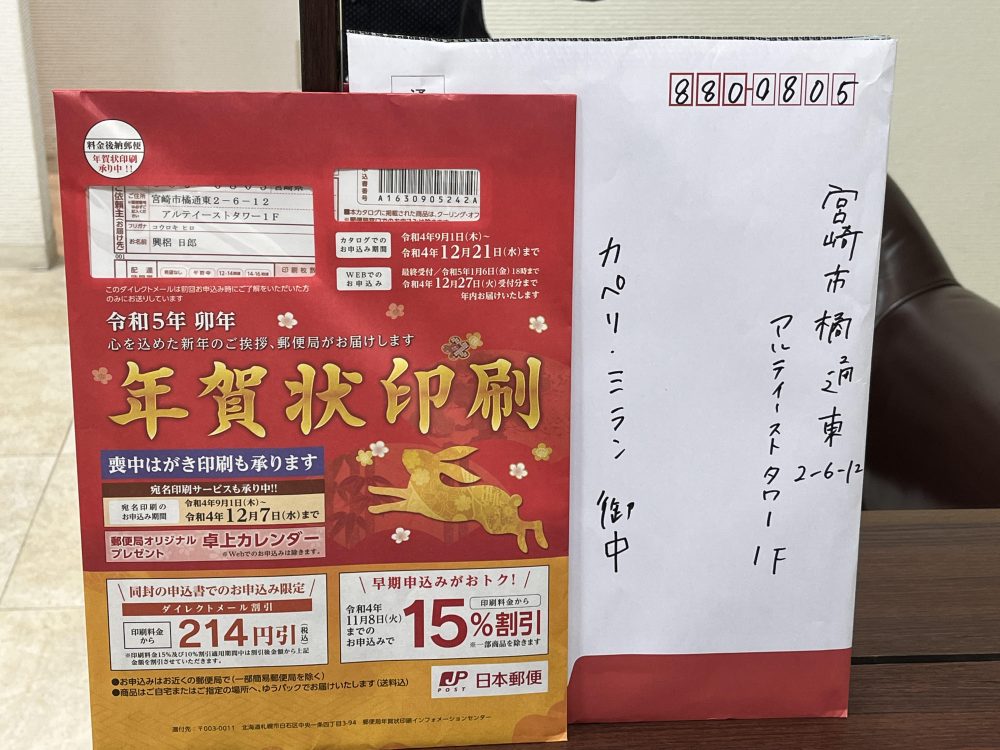 料金後納郵便
年賀状印刷
承り中!!
ご依頼主(お届け先)
ご住所
宮崎市橘通東2-6-12
アルティーストタワー1F
フリガナ コウロキ ヒロ
お名前 興梠 日郎
配達
希望なし 午前中 12-14時頃 14-16時頃
印刷枚数
申込書番号
A1630905242A
■本カタログに掲載された商品は、クーリング・オフ
カタログでの
お申込み期間
令和4年9月1日(木)~
令和4年12月21日(水)まで
WEBでの
お申込み
最終受付/令和5年1月6日(金)18時まで
令和4年12月27日(火)受付分まで
年内お届けいたします
このダイレクトメールは前回お申込み時にご了解をいただいた方
のみにお送りしています
令和5年 卯年
心を込めた新年のご挨拶、郵便局がお届けします
年賀状印刷
喪中はがき印刷も承ります
宛名印刷サービスも承り中!!
宛名印刷の
お申込み期間
令和4年9月1日(木)~
令和4年12月7日(水)まで
郵便局オリジナル
プレゼント
卓上カレンダー
※Webでのお申込みは除きます。
同封の申込書でのお申込み限定
ダイレクトメール割引
印刷料金
から
214円引(税込)
※印刷料金15%及び10%割引適用期間中は割引後金額から上記
金額を割引させていただきます。
早期申込みがおトク!
令和4年
11月8日(火)
までの
お申込みで
印刷料金から
15%割引
※一部商品を除きます
●お申込みはお近くの郵便局で(一部簡易郵便局を除く)
●商品はご自宅またはご指定の場所へ、ゆうパックでお届けいたします(送料込)
JP
POST
日本郵便
還付先:〒003-0011 北海道札幌市白石区中央一条四丁目3-94 郵便局年賀状印刷インフォメーションセンター
8800805
宮崎市橘通東
2-6-12
アルティーストタワー 1F
カペリ・ミラン 御中